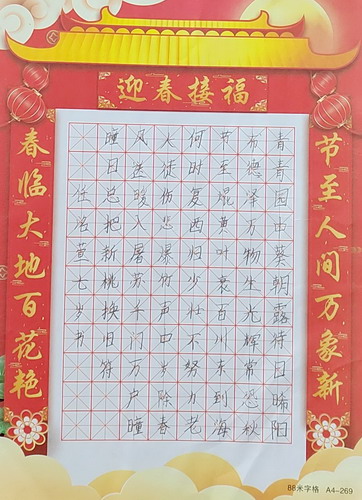 迎春接福
节至人间万象新
春临大地百花艳
青青园中葵朝露待日晞阳
布德泽万物生光辉常恐秋
节至焜黄叶衰百川东到海
何时复西归少壮不努力老
大徒伤悲爆竹声中岁除春
风送暖入屠苏千门万户曈
曈日总把新桃换旧符
任洺萱七岁书
88米字格 A4-269